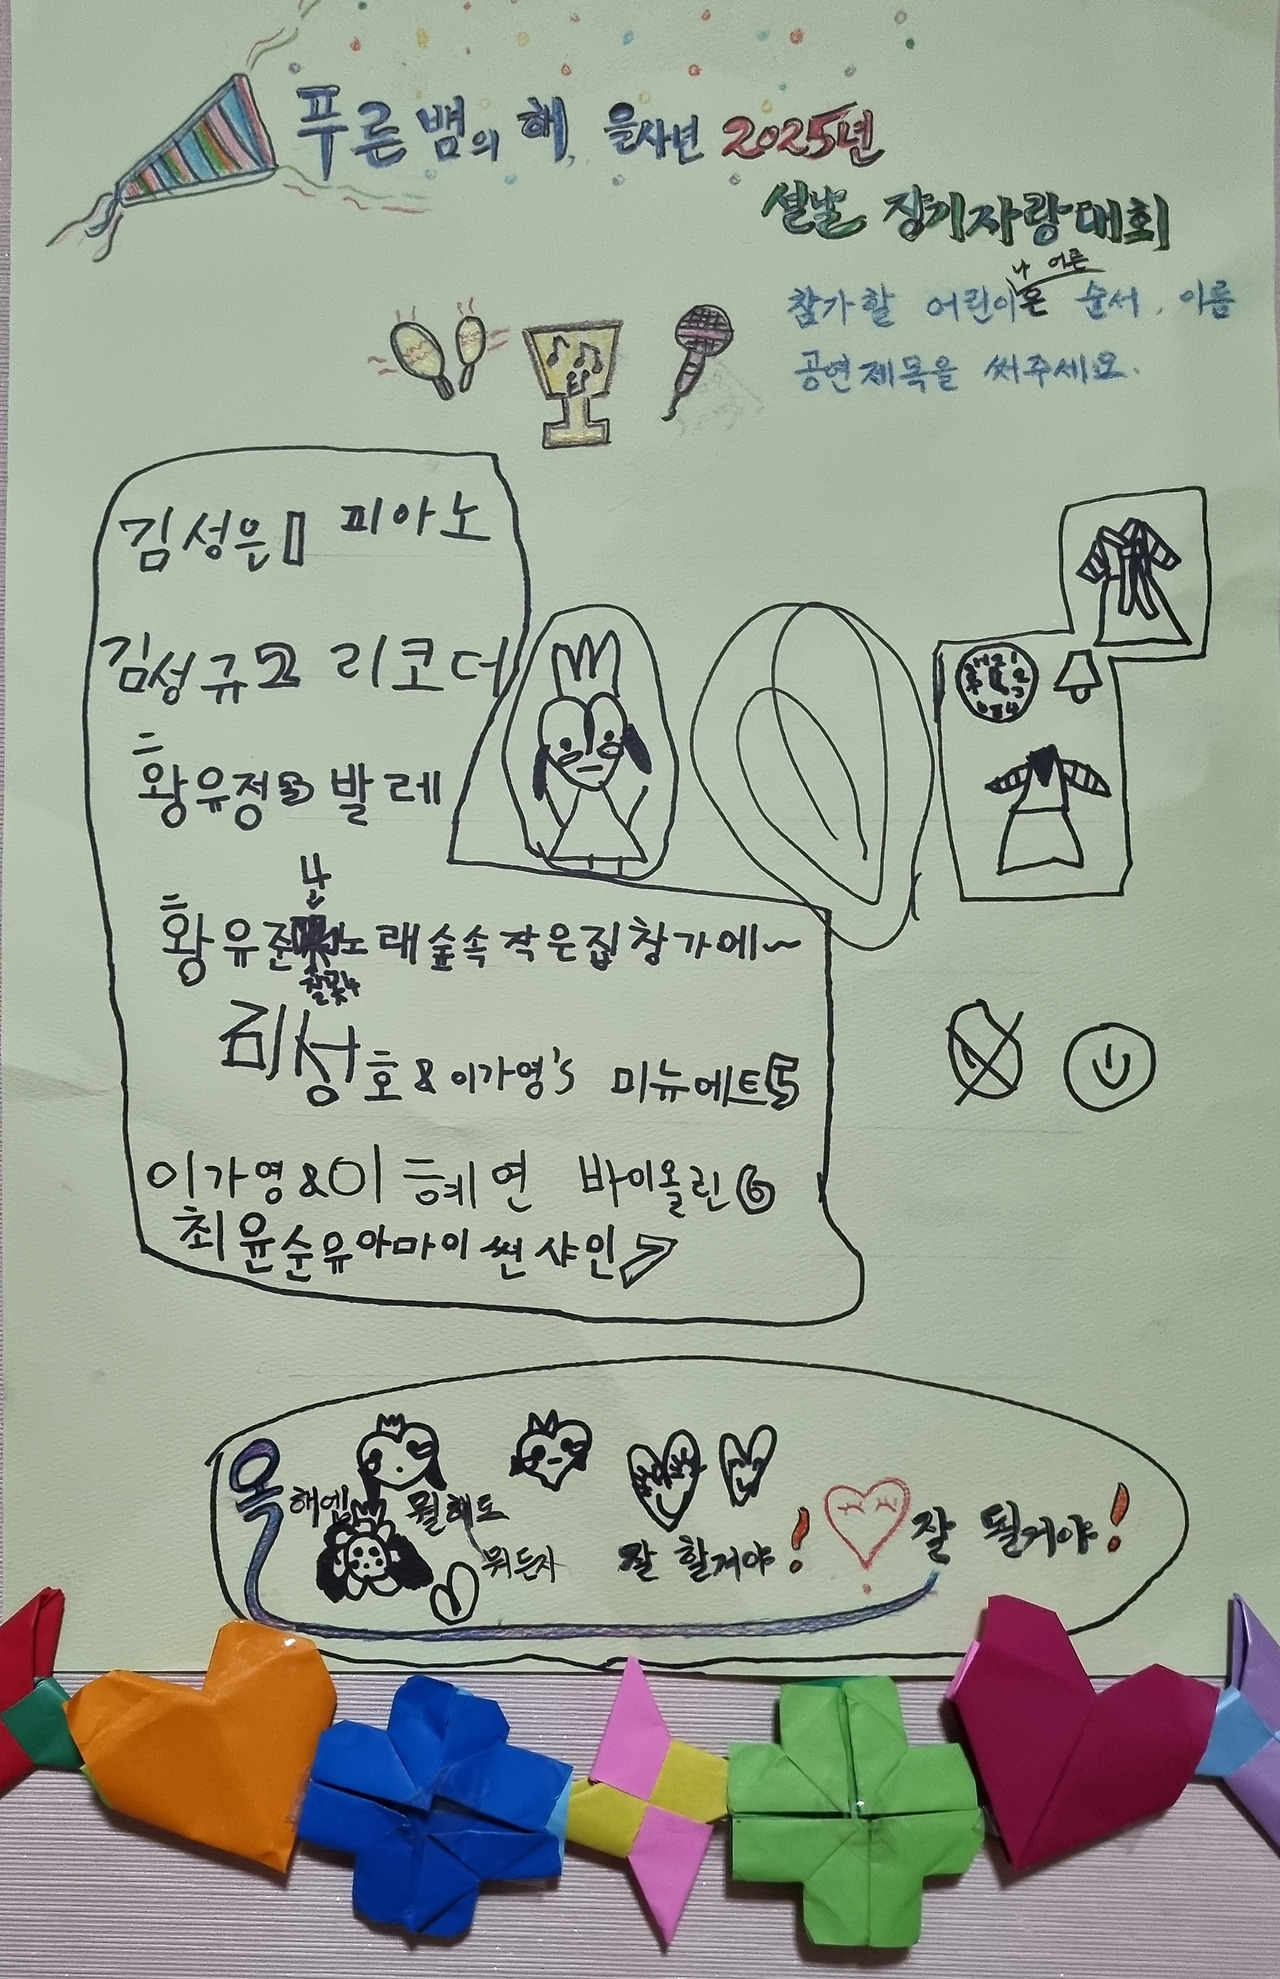 푸른 뱀의 해, 을사년 2025년
설날 장기자랑대회
나 어른
참가할 어린이은 순서, 이름
공연제목을 써주세요.
김성은1 피아노
김성규2 리코더
황유정3 발레
4
황유준 노래 숲속 작은집 창가에~
잘못
김성호 & 이가영's 미뉴에트5
이가영&이혜연 바이올린6
최윤순 유아마이 썬샤인7
올해엔 뭘해도 잘 할거야! 잘 될거야!
뭐든지